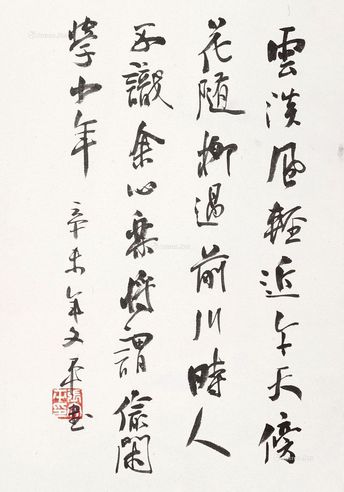 雲淡風輕近午天傍
花隨柳過前川時人
不識余心樂將謂偷閑
學少年
辛未年文平書